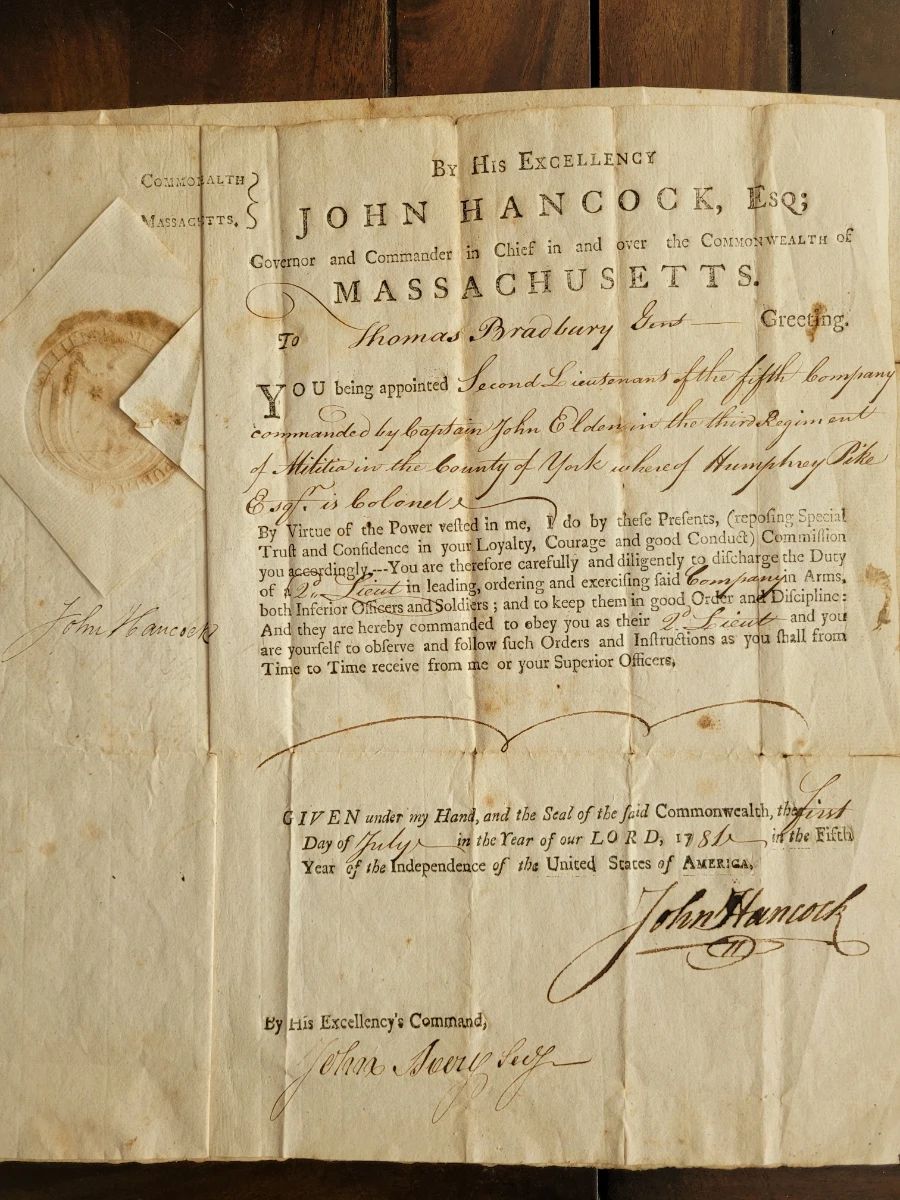 COMMONWEALTH
MASSACHUSETTS.
BY HIS EXCELLENCY
JOHN HANCOCK, ESQ;
Governor and Commander in Chief in and over the COMMONWEALTH of
MASSACHUSETTS.
To Thomas Bradbury Gent Greeting.
YOU being appointed Second Lieutenant of the fifth Company
commanded by Captain John Elden in the third Regiment
of Militia in the County of York whereof Humphrey Pike
Esqr. is Colonel
By Virtue of the Power vested in me, I do by these Presents, (reposing Special
Trust and Confidence in your Loyalty, Courage and good Conduct) Commission
you accordingly.---You are therefore carefully and diligently to discharge the Duty
of a 2d. Lieut in leading, ordering and exercising said Company in Arms,
both Inferior Officers and Soldiers; and to keep them in good Order and Discipline:
And they are hereby commanded to obey you as their 2d Lieut and you
are yourself to observe and follow such Orders and Instructions as you shall from
Time to Time receive from me or your Superior Officers,
John Hancock
GIVEN under my Hand, and the Seal of the said Commonwealth, the First
Day of July in the Year of our LORD, 1781 in the Fifth
Year of the Independence of the United States of AMERICA,
John Hancock
By His Excellency's Command,
John Avery Secy